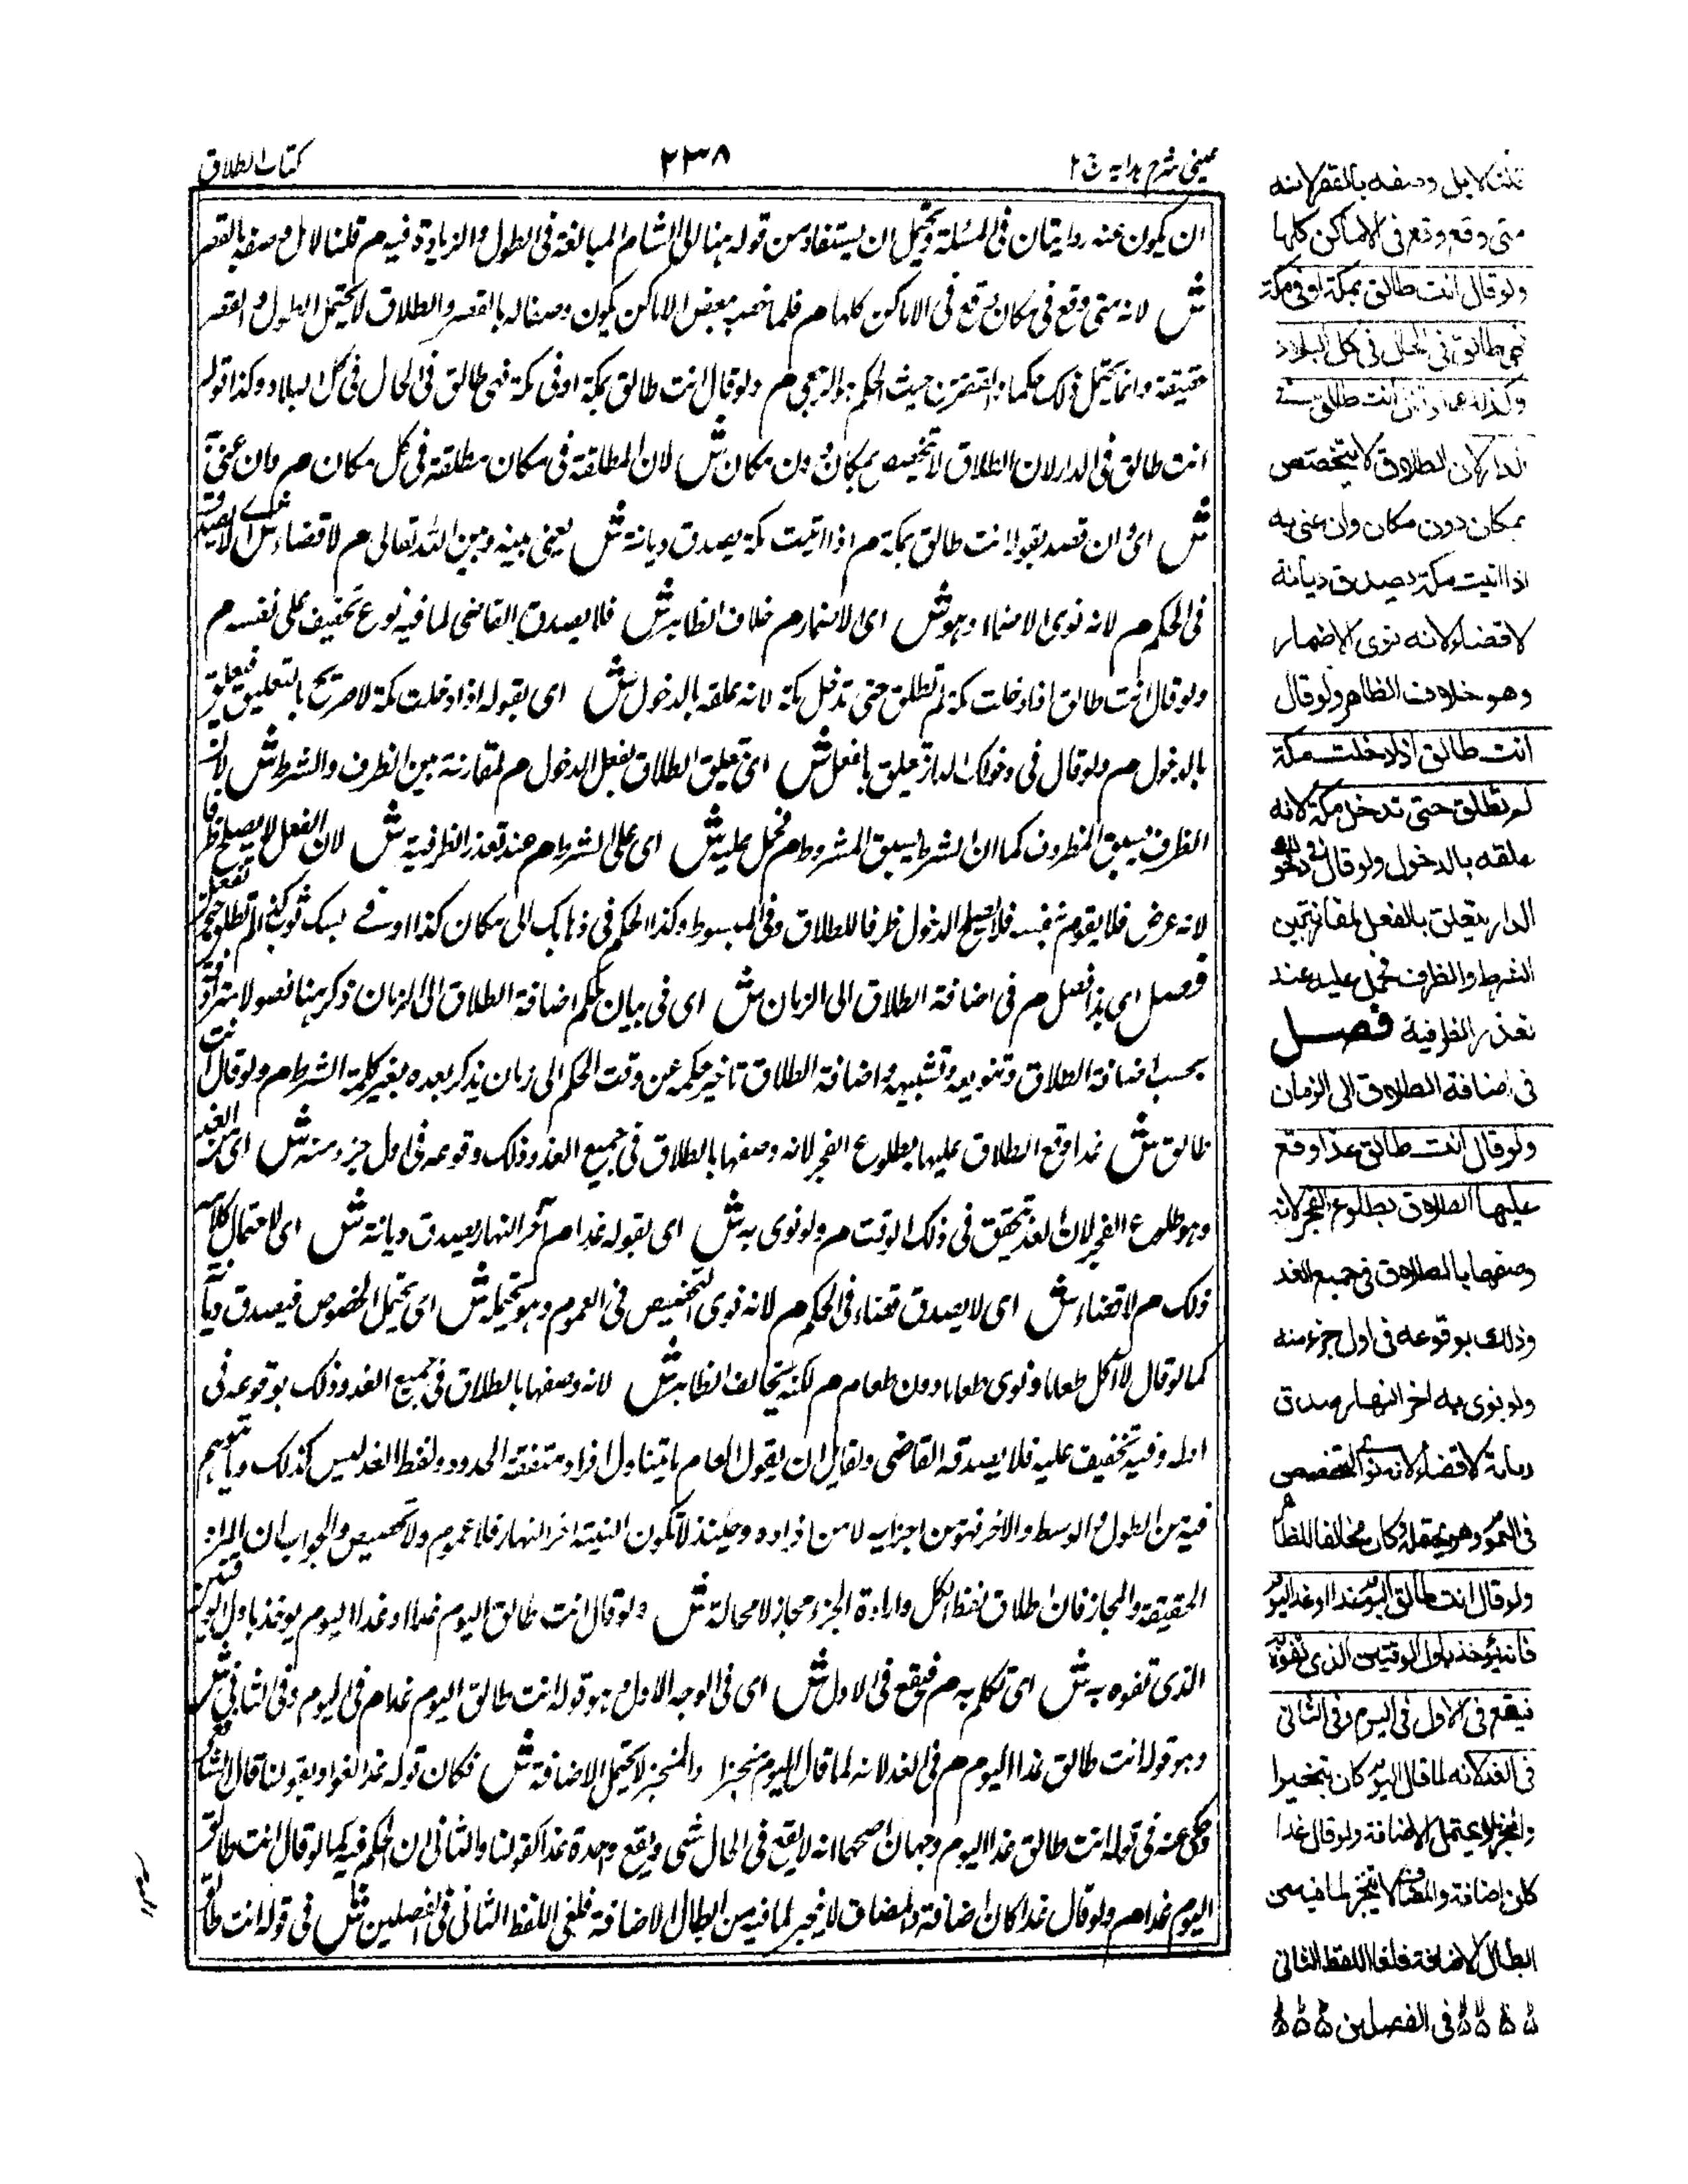 عینی شرح ہدایہ ج ٢
٢٣٨
کتاب الطلاق
ان یکون عنہ روایتان فی المسئلۃ ویحتمل ان یستفاد من قولہ ہنا الی الشام المبالغۃ فی الطول والزیادۃ فیہ م قلنا لا بل وصفہ بالقصر
ش لانہ متی وقع فی مکان یقع فی الاماکن کلہا م فلما خصہ ببعض الاماکن یکون وصفا لہ بالقصر والطلاق لا یحتمل الطول والقصر
حقیقۃ وانما یحتمل ذلک حکما والقصر من حیث الحکم ہو الرجعی م ولو قال انت طالق بمکۃ او فی مکۃ فہی طالق فی الحال فی کل البلاد وکذا قولہ
انت طالق فی الدار لان الطلاق لا یتخصص بمکان دون مکان ش لان المطلقۃ فی مکان مطلقۃ فی کل مکان م وان عنی بہ
ش ای وان قصد بقولہ انت طالق بمکۃ م اذا اتیت مکۃ یصدق دیانۃ ش یعنی بینہ وبین اللہ تعالی م لا قضاء ش ای لا یصدق
فی الحکم م لانہ نوی الاضمار وہو ش ای الاضمار م خلاف الظاہر ش فلا یصدق القاضی لما فیہ نوع تخفیف علی نفسہ م
ولو قال انت طالق اذا دخلت مکۃ لم تطلق حتی تدخل مکۃ لانہ علقہ بالدخول ش ای بقولہ اذا دخلت مکۃ لا صریح بالتعلیق فیعلق
بالدخول م ولو قال فی دخولک الدار تعلق بالفعل ش ای تعلق الطلاق بفعل الدخول م لمقارنۃ بین الظرف والشرط ش لان
الظرف یسبق المظروف کما ان الشرط یسبق المشروط م فحمل علیہ ش ای علی الشرط م عند تعذر الظرفیۃ ش لان الفعل لا یصلح ظرفا
لانہ عرض فلا یقوم بنفسہ فلا یصلح الدخول ظرفا للطلاق وفی المبسوط وکذا الحکم فی ذہابک الی مکان کذا او فی لبسک ثوب کذا لم تطلق حتی تفعل
فصل ای ہذا فصل م فی اضافۃ الطلاق الی الزمان ش ای فی بیان حکم اضافۃ الطلاق الی الزمان ذکر ہنا فصولا مترادفۃ
بحسب اضافۃ الطلاق وتنویعہ وتشبیہہ واضافۃ الطلاق تاخیر حکمہ عن وقت الحکم الی زمان یذکر بعدہ بغیر کلمۃ الشرط م ولو قال انت
طالق ش غدا وقع الطلاق علیہا بطلوع الفجر لانہ وصفہا بالطلاق فی جمیع الغد وذلک وقوعہ فی اول جزء منہ ش ای من الغد
وہو طلوع الفجر لان الغد یتحقق فی ذلک الوقت م ولو نوی بہ ش ای بقولہ غدا م آخر النہار یصدق دیانۃ ش ای لاحتمال کلامہ
ذلک م لا قضاء ش ای لا یصدق قضاء فی الحکم م لانہ نوی التخصیص فی العموم وہو یحتملہ ش ای یحتمل الخصوص فیصدق دیانۃ
کما لو قال لا آکل طعاما ونوی طعاما دون طعام م لکنہ یخالف الظاہر ش لانہ وصفہا بالطلاق فی جمیع الغد وذلک بوقوعہ فی
اولہ وفیہ تخفیف علیہ فلا یصدقہ القاضی ولقائل ان یقول العام ما یتناول افرادا متفقۃ الحدود ولفظ الغد لیس کذلک وما یتوہم
فیہ من الطول والوسط والآخر فہو من اجزایہ لا من افرادہ وحینئذ لا تکون النیۃ اخر النہار فلا عموم ولا تخصیص والجواب ان المراد
الحقیقۃ والمجاز فان اطلاق لفظ الکل وارادۃ الجزء مجاز لا محالۃ ش ولو قال انت طالق الیوم غدا او غدا الیوم یوخذ باول الوقتین
الذی تفوہ بہ ش ای تکلم بہ م فیقع فی الاول ش ای فی الوجہ الاول وہو قولہ انت طالق الیوم غدا م فی الیوم وفی الثانی ش
وہو قولہ انت طالق غدا الیوم م فی الغد لانہ لما قال الیوم منجزا والمنجز لا یحتمل الاضافۃ ش فکان قولہ غدا لغوا وبقولنا قال الشافعی
وحکی عنہ فی قولہ انت طالق غدا الیوم وجہان اصحہما انہ لا یقع فی الحال شی ویقع واحدۃ غدا کقولنا والثانی ان الحکم فیہ کما لو قال انت طالق
الیوم غدا م ولو قال غدا کان اضافۃ والمضاف لا یتنجز لما فیہ من ابطال الاضافۃ فلغی اللفظ الثانی فی الفصلین ش فی قولہ انت طالق
قلنا لا بل وصفه بالقصر لانه
متى وقع وقع فى الاماكن كلها
ولو قال انت طالق بمكة او فى مكة
فهى طالق فى الحال فى كل البلاد
وكذلك انت طالق فى
الدار لان الطلاق لا يتخصص
بمكان دون مكان وان عنى به
اذا اتيت مكة يصدق ديانة
لا قضاء لانه نوى الاضمار
وهو خلاف الظاهر ولو قال
انت طالق اذا دخلت مكة
لم تطلق حتى تدخل مكة لانه
علقه بالدخول ولو قال فى دخولك
الدار يتعلق بالفعل لمقارنة بين
الشرط والظرف فحمل عليه عند
تعذر الظرفية فصل
فى اضافة الطلاق الى الزمان
ولو قال انت طالق غدا وقع
عليها الطلاق بطلوع الفجر لانه
وصفها بالطلاق فى جميع الغد
وذلك بوقوعه فى اول جزء منه
ولو نوى به اخر النهار صدق
ديانة لا قضاء لانه نوى التخصيص
فى العموم وهو يحتمله وكان مخالفا للظاهر
ولو قال انت طالق اليوم غدا او غدا اليوم
فانه يؤخذ باول الوقتين الذى تفوه به
فيقع فى الاول فى اليوم وفى الثانى
فى الغد لانه لما قال اليوم كان تنجيزا
والمنجز لا يحتمل الاضافة ولو قال غدا
كان اضافة والمضاف لا يتنجز لما فيه من
ابطال الاضافة فلغا اللفظ الثانى
فى الفصلين